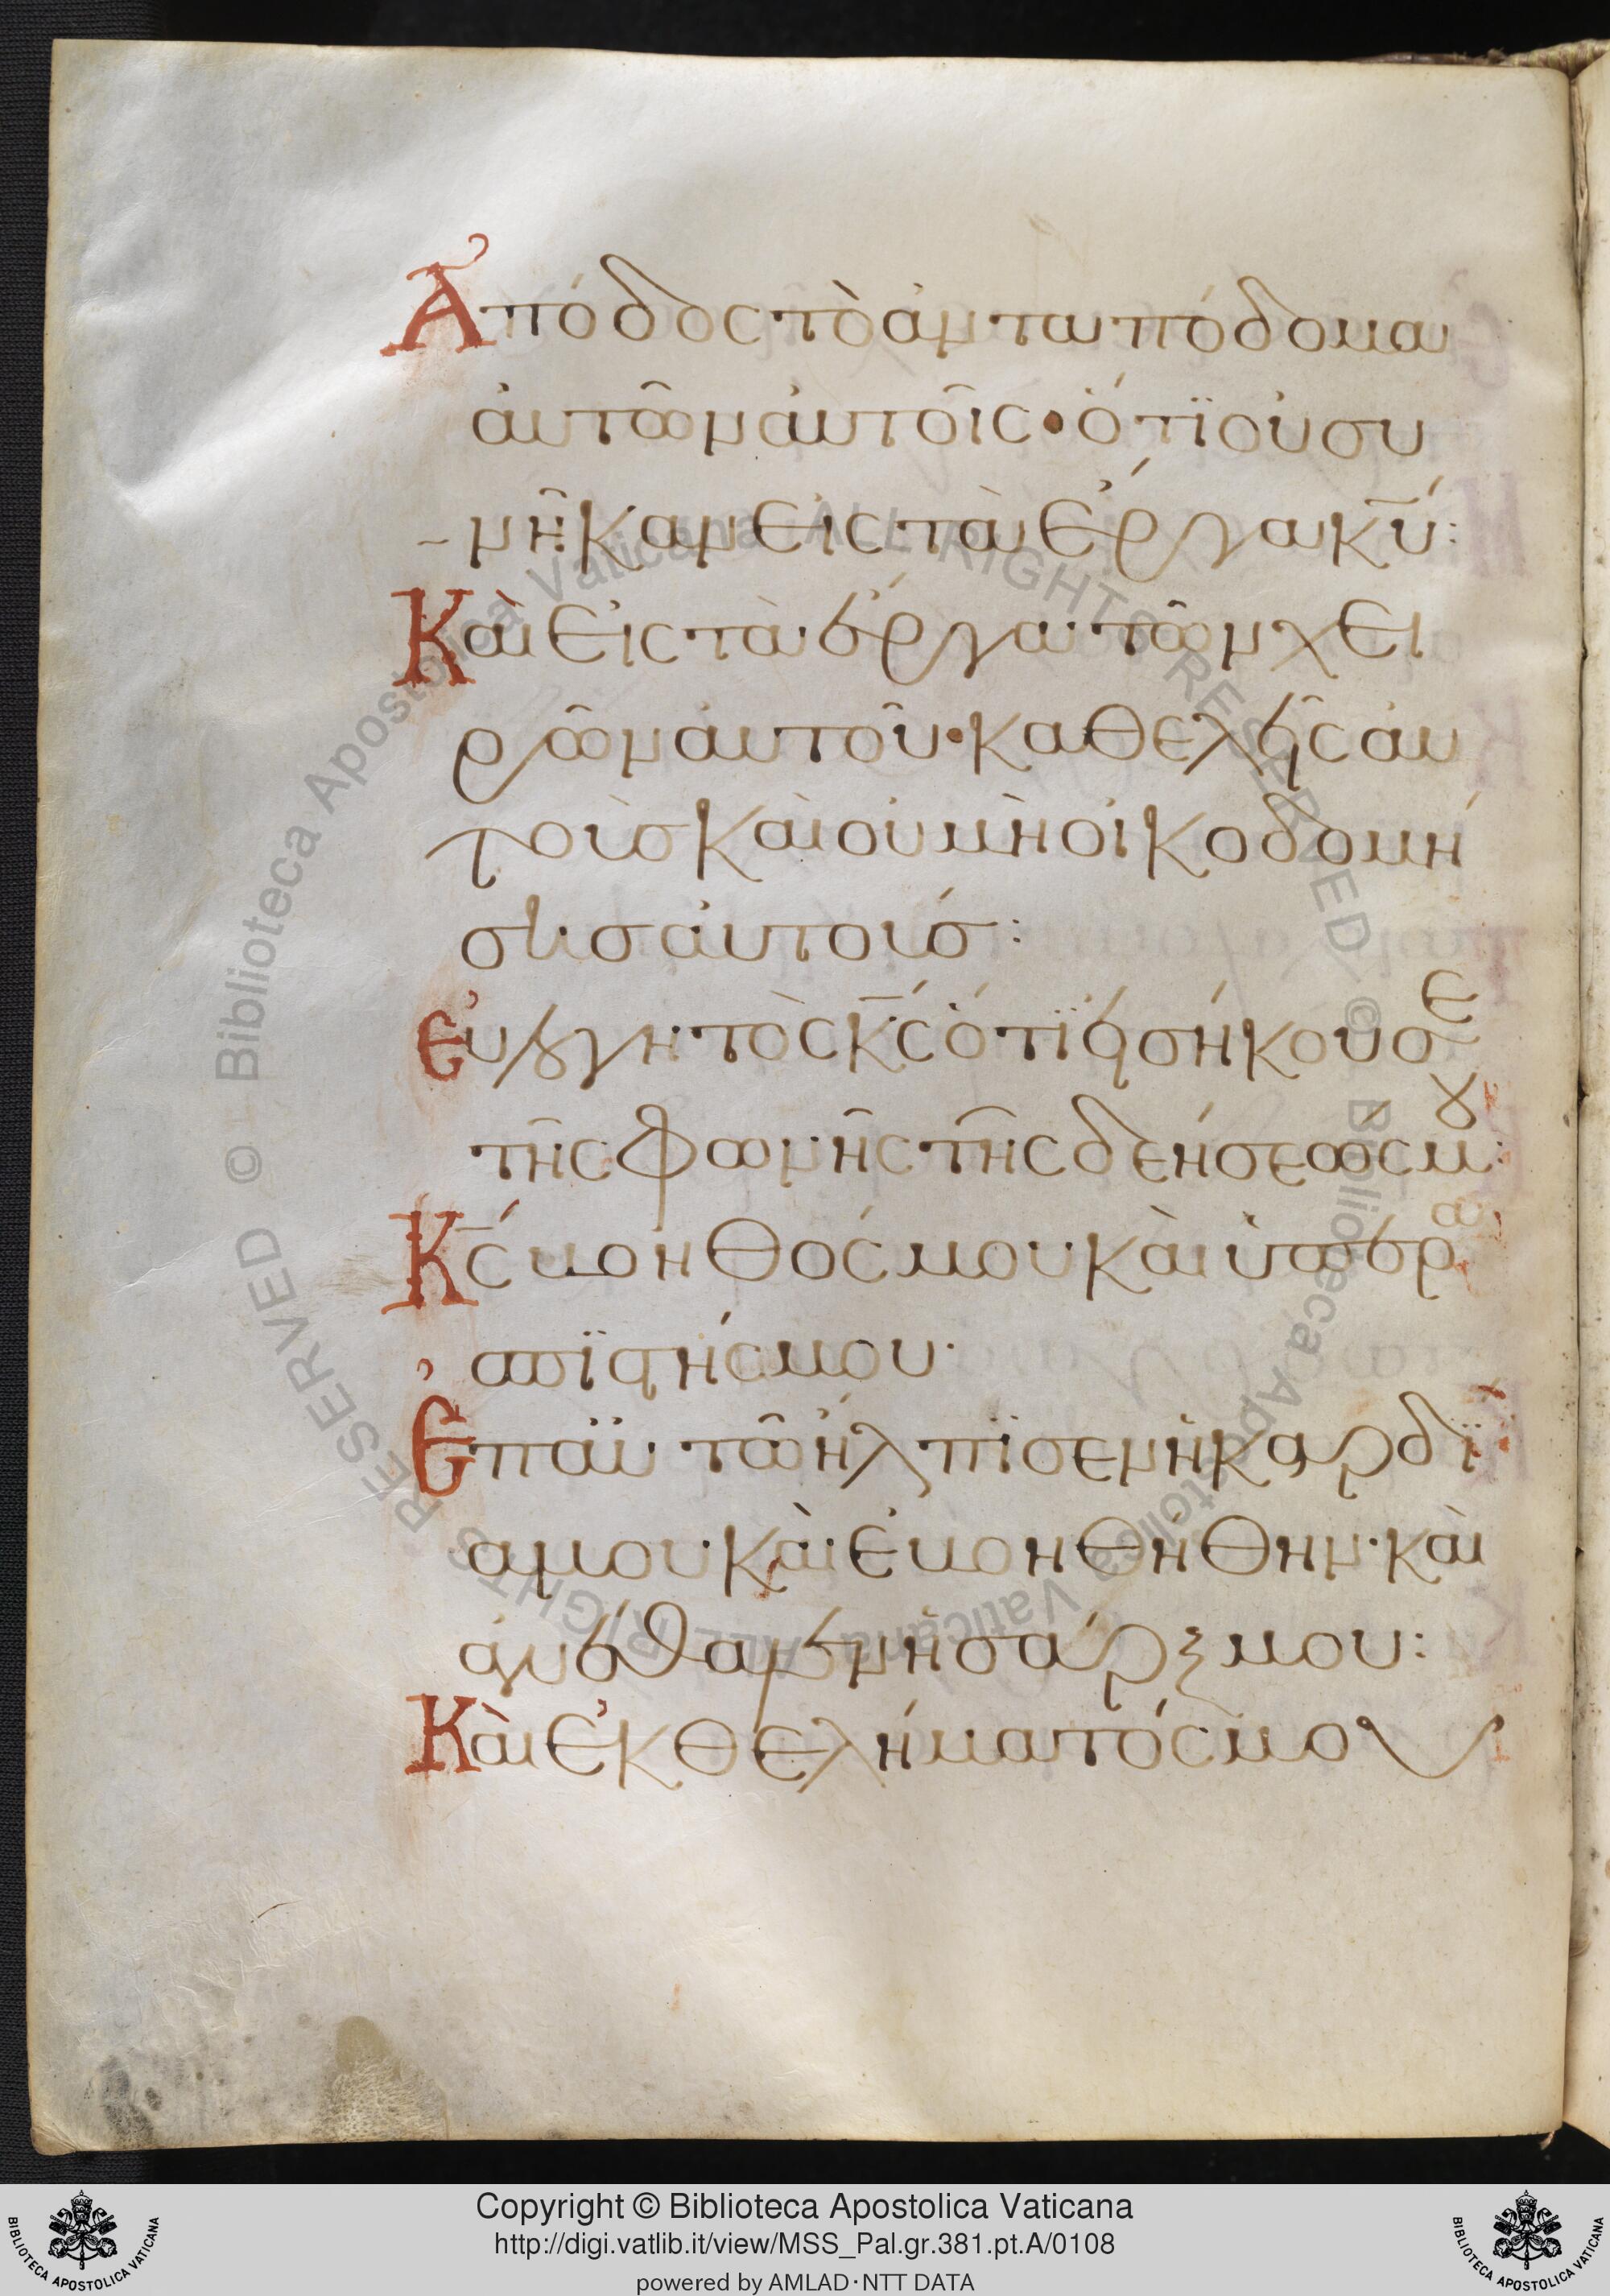 Ἀπόδος τὸ ἀνταπόδομα
ἀυτῶν ἀυτοῖς· ὅτϊ οὐ συ
νῆκαν εἰς τὰ ἔργα κ̅ύ:
Καὶ εἰς τὰ ἔργα τῶν χει
ρῶν ἀυτοῦ· καθελῆς ἀυ
τοὺσ καὶ οὐ μὴ οἰκοδομή
σεισ ἀυτούσ:
Ἐυλογητὸς κ̅ς́ ὅτϊ εἰσήκουσε
τῆς φωνῆς τῆς δεήσεώς μου:
Κ̅ς́ βοηθός μου καὶ ὑπερα
σπϊστής μου·
Ἐπ ἀϋτῶ ἤλπϊσεν ἡ καρδϊ
α μου· καὶ ἐβοηθήθην· καὶ
ἀνέθαλεν ἡ σάρξ μου:
Καὶ ἐκ θελήματός μου
Copyright © Biblioteca Apostolica Vaticana
http://digi.vatlib.it/view/MSS_Pal.gr.381.pt.A/0108
powered by AMLAD·NTT DATA
BIBLIOTECA APOSTOLICA VATICANA
BIBLIOTECA APOSTOLICA VATICANA
© Biblioteca Apostolica Vaticana ALL RIGHTS RESERVED
© Biblioteca Apostolica Vaticana ALL RIGHTS RESERVED